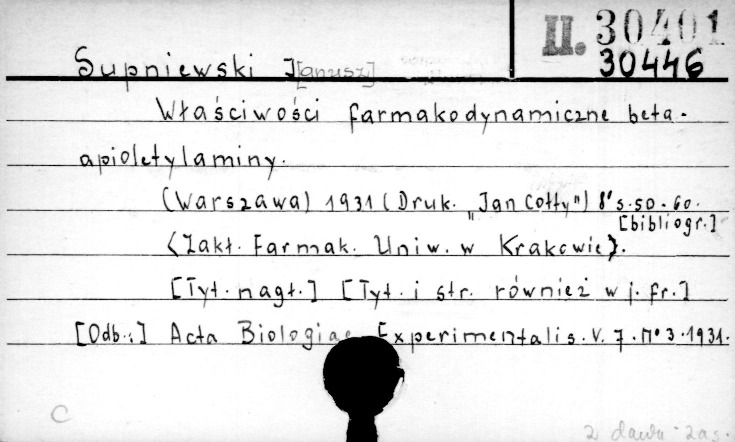 II. 30401
30446
Supniewski J[anusz]
Właściwości farmakodynamiczne beta-
apioletylaminy.
(Warszawa) 1931 (Druk. "Jan Cotty") 8° s. 50-60.
[bibliogr.]
(Zakł. Farmak. Uniw. w Krakowie).
[Tyt. nagł.] [Tyt. i str. również w j. fr.]
[Odb.:] Acta Biologiae Experimentalis. V. 7. No 3. 1931.
C